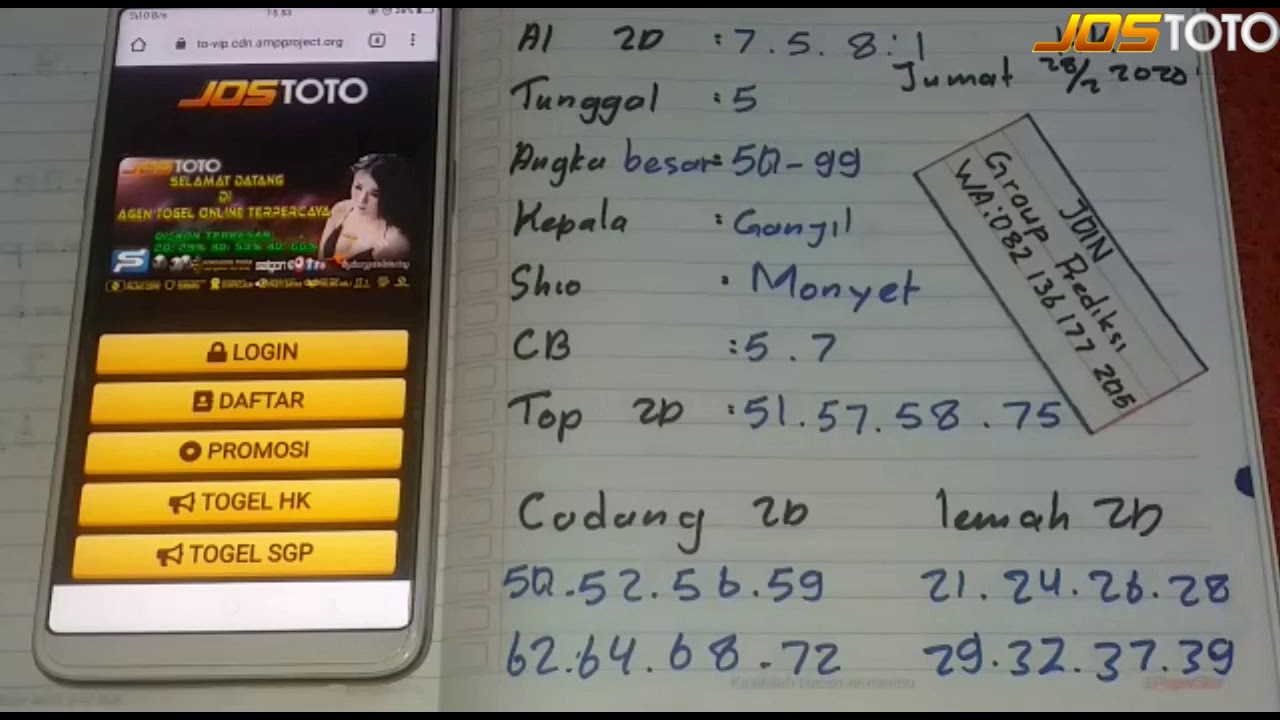 JOSTOTO
15.53
to-vip.cdn.ampproject.org
JOSTOTO
JOSTOTO
SELAMAT DATANG
DI
AGEN TOGEL ONLINE TERPERCAYA
LOGIN
DAFTAR
PROMOSI
TOGEL HK
TOGEL SGP
AI 2D : 7. 5. 8. 1
Jumat 28/2 2020
Tunggal : 5
Angka besar : 50-99
Kepala : Ganjil
Shio : Monyet
CB : 5 . 7
Top 2D : 51. 57. 58 . 75
JOIN
Group Prediksi
WA:082 136 177 205
Cadang 2D
50 . 52 . 56 . 59
62 . 64 . 68 . 72
lemah 2D
21 . 24 . 26 . 28
29 . 32 . 37 . 39